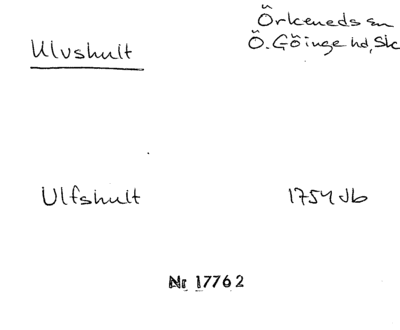 Örkeneds sn
Ulvshult Ö. Göinge hd, Sk
Ulfshult 1754 Jb
Nr 17762